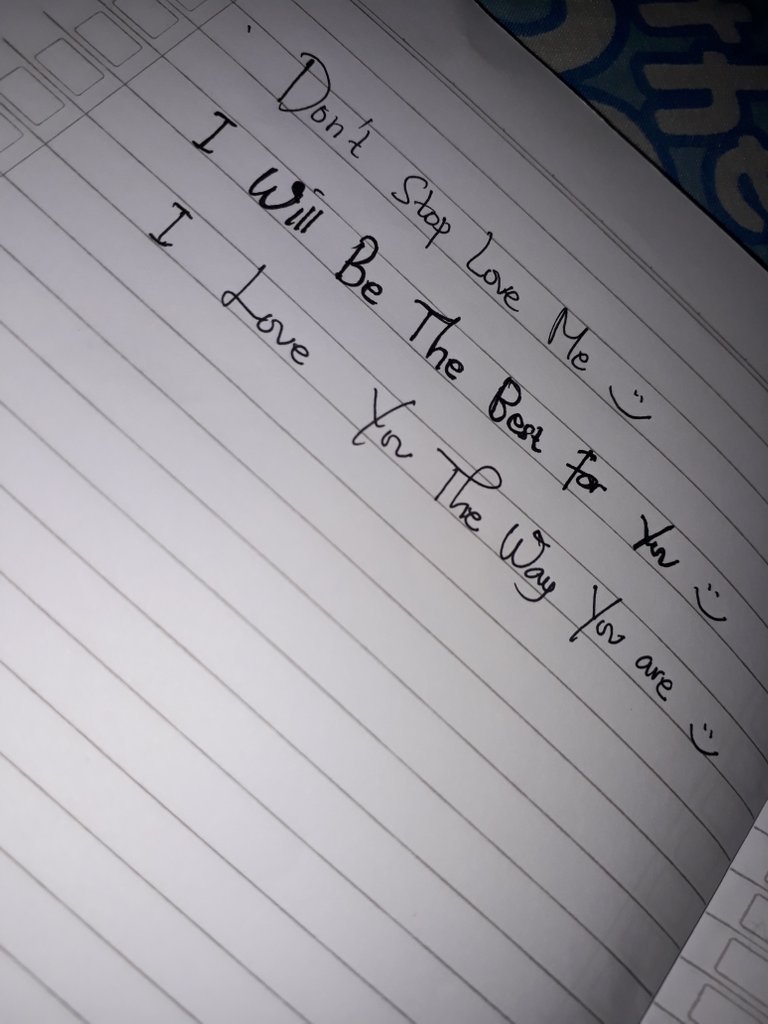 Don't Stop Love Me :)
I Will Be The Best For You :)
I Love You The Way You are :)